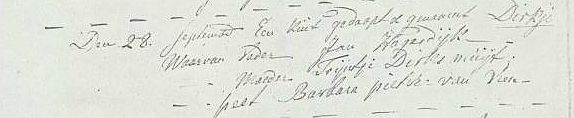 Den 28. september Een kint gedoopt & genaemt Dirkje
Waarvan Vader Jan Hagendijk
- - Moeder Trijntje Dirks muijt
- - peet Barbara pieters van Veen